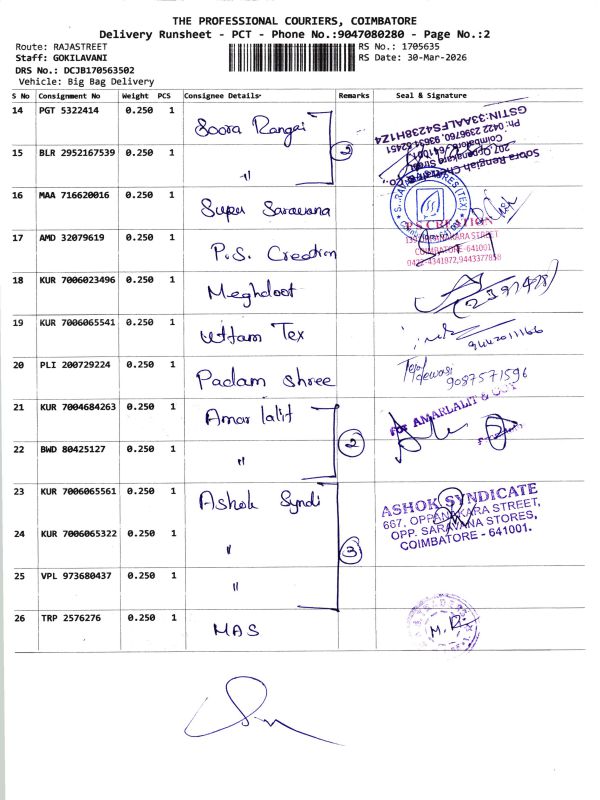 THE PROFESSIONAL COURIERS, COIMBATORE
Delivery Runsheet - PCT - Phone No.:9047080280 - Page No.:2
Route: RAJASTREET
RS No.: 1705635
Staff: GOKILAVANI
RS Date: 30-Mar-2026
DRS No.: DCJB170563502
Vehicle: Big Bag Delivery
S No Consignment No Weight PCS Consignee Details Remarks Seal & Signature
14 PGT 5322414 0.250 1 Soora Rangai
15 BLR 2952167539 0.250 1 "
GSTIN:33AALFS4238H1Z4
16 MAA 716620016 0.250 1 Super Saravana
17 AMD 32079619 0.250 1 P.S. Creation
P.S CREATION
COIMBATORE-641001
0422-4341972,9443377858
18 KUR 7006023496 0.250 1 Meghdoot
19 KUR 7006065541 0.250 1 Uttam Tex
20 PLI 200729224 0.250 1 Padam Shree
9087571596
21 KUR 7004684263 0.250 1 Amar lalit
For AMARLALIT &
22 BWD 80425127 0.250 1 " 2
23 KUR 7006065561 0.250 1 Ashok Syndi
ASHOK SYNDICATE
667, OPPANAKARA STREET,
OPP. SARAVANA STORES,
COIMBATORE - 641001.
24 KUR 7006065322 0.250 1 " 3
25 VPL 973680437 0.250 1 "
26 TRP 2576276 0.250 1 MAS